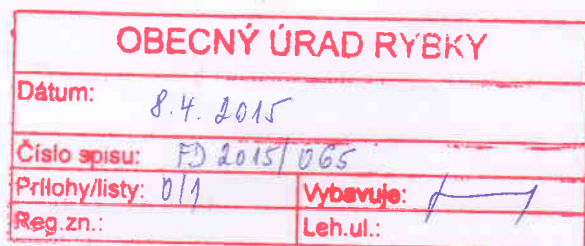 OBECNÝ ÚRAD RYBKY
Dátum: 8.4. 2015
Číslo spisu: FD 2015/065
Prílohy/listy: 0/1 Vybavuje:
Reg.zn.: Leh.ul.: